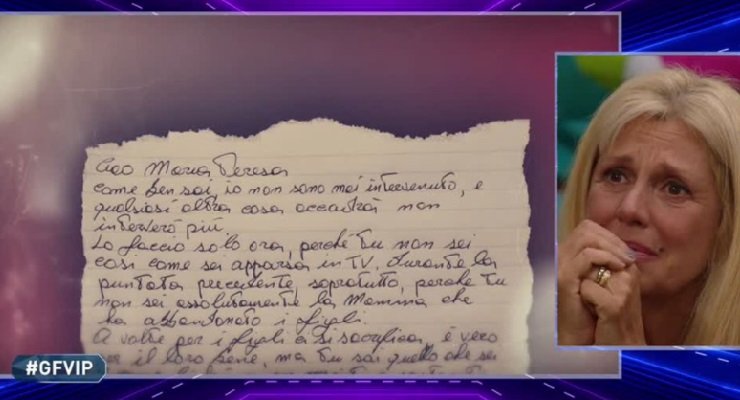 Ciao Maria Teresa
come ben sai, io non sono mai intervenuto, e
qualsiasi altra cosa accadrà non
interverrò più.
Lo faccio solo ora, perché tu non sei
così come sei apparsa in TV. durante la
puntata precedente, sopratutto, perché tu
non sei assolutamente la Mamma che
ha abbandonato i figli.
A volte per i figli ci si sacrifica, è vero
per il loro bene, ma tu sai quello che sei
#GFVIP